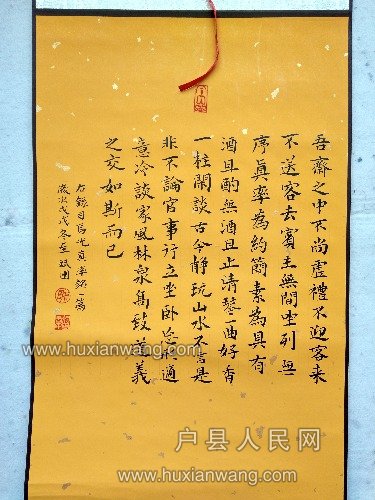 吾齋之中不尚虛禮不迎客來
不送客去賓主無間坐列無
序真率為約簡素為具有
酒且酌無酒且止清琴一曲好香
一柱閑談古今静玩山水不言是
非不論官事行立坐卧忘形適
意冷談家風林泉高致道義
之交如斯而已
右錄司馬光真率銘一篇
歲次戊戌冬至
www.huxianwang.com
户县人民网
www.huxianwang.com